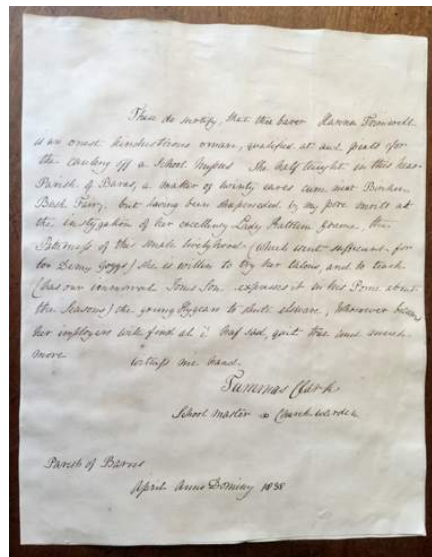 These do sertify, that the barer Hannar Forniwell
is an onest hindustrous oman, qualified at aul pints for
the cauling off a School Missus She half taught in this hear
Parish of Barns, a matter of twinty eares cum next
Bush Fairy, but having been shuperceded by my pore merits at
the instygation of her excellency Lady Katrine Graeme, the
Patriness of this smale livelyhood (which went
for Demy Goggs) she is willin to try her talons, and to teach
(has our immorral Jons Son expresses it in his Pome about
the Seasons) the young Hygears to shute elsware, Wherever
her imployers will find al i haf sad, quit true and much
more
witness me hand.
Tummas Clark
School Master & Church warden
Parish of Barns
April Anno Dominy 1838